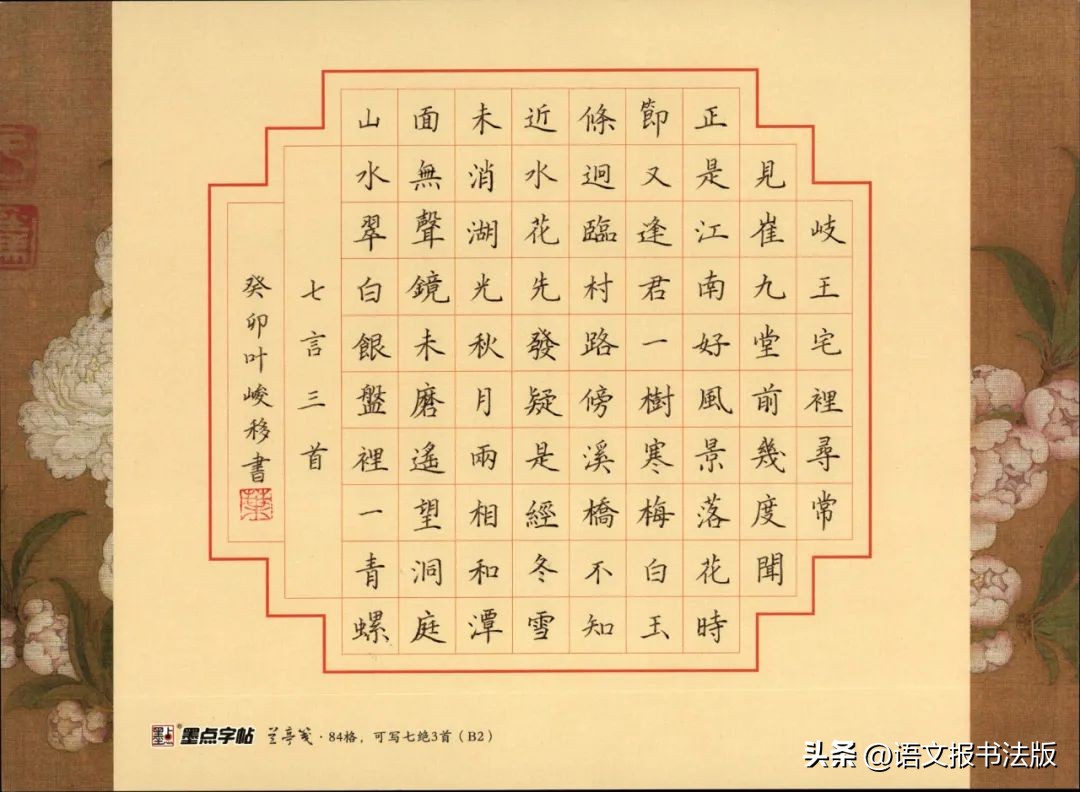 岐王宅裡尋常
見崔九堂前幾度聞
正是江南好風景落花時
節又逢君一樹寒梅白玉
條迥臨村路傍溪橋不知
近水花先發疑是經冬雪
未消湖光秋月兩相和潭
面無聲鏡未磨遙望洞庭
山水翠白銀盤裡一青螺
七言三首
癸卯叶峻移書
葉
墨点字帖 兰亭笺·84格,可写七绝3首(B2)
头条 @语文报书法版